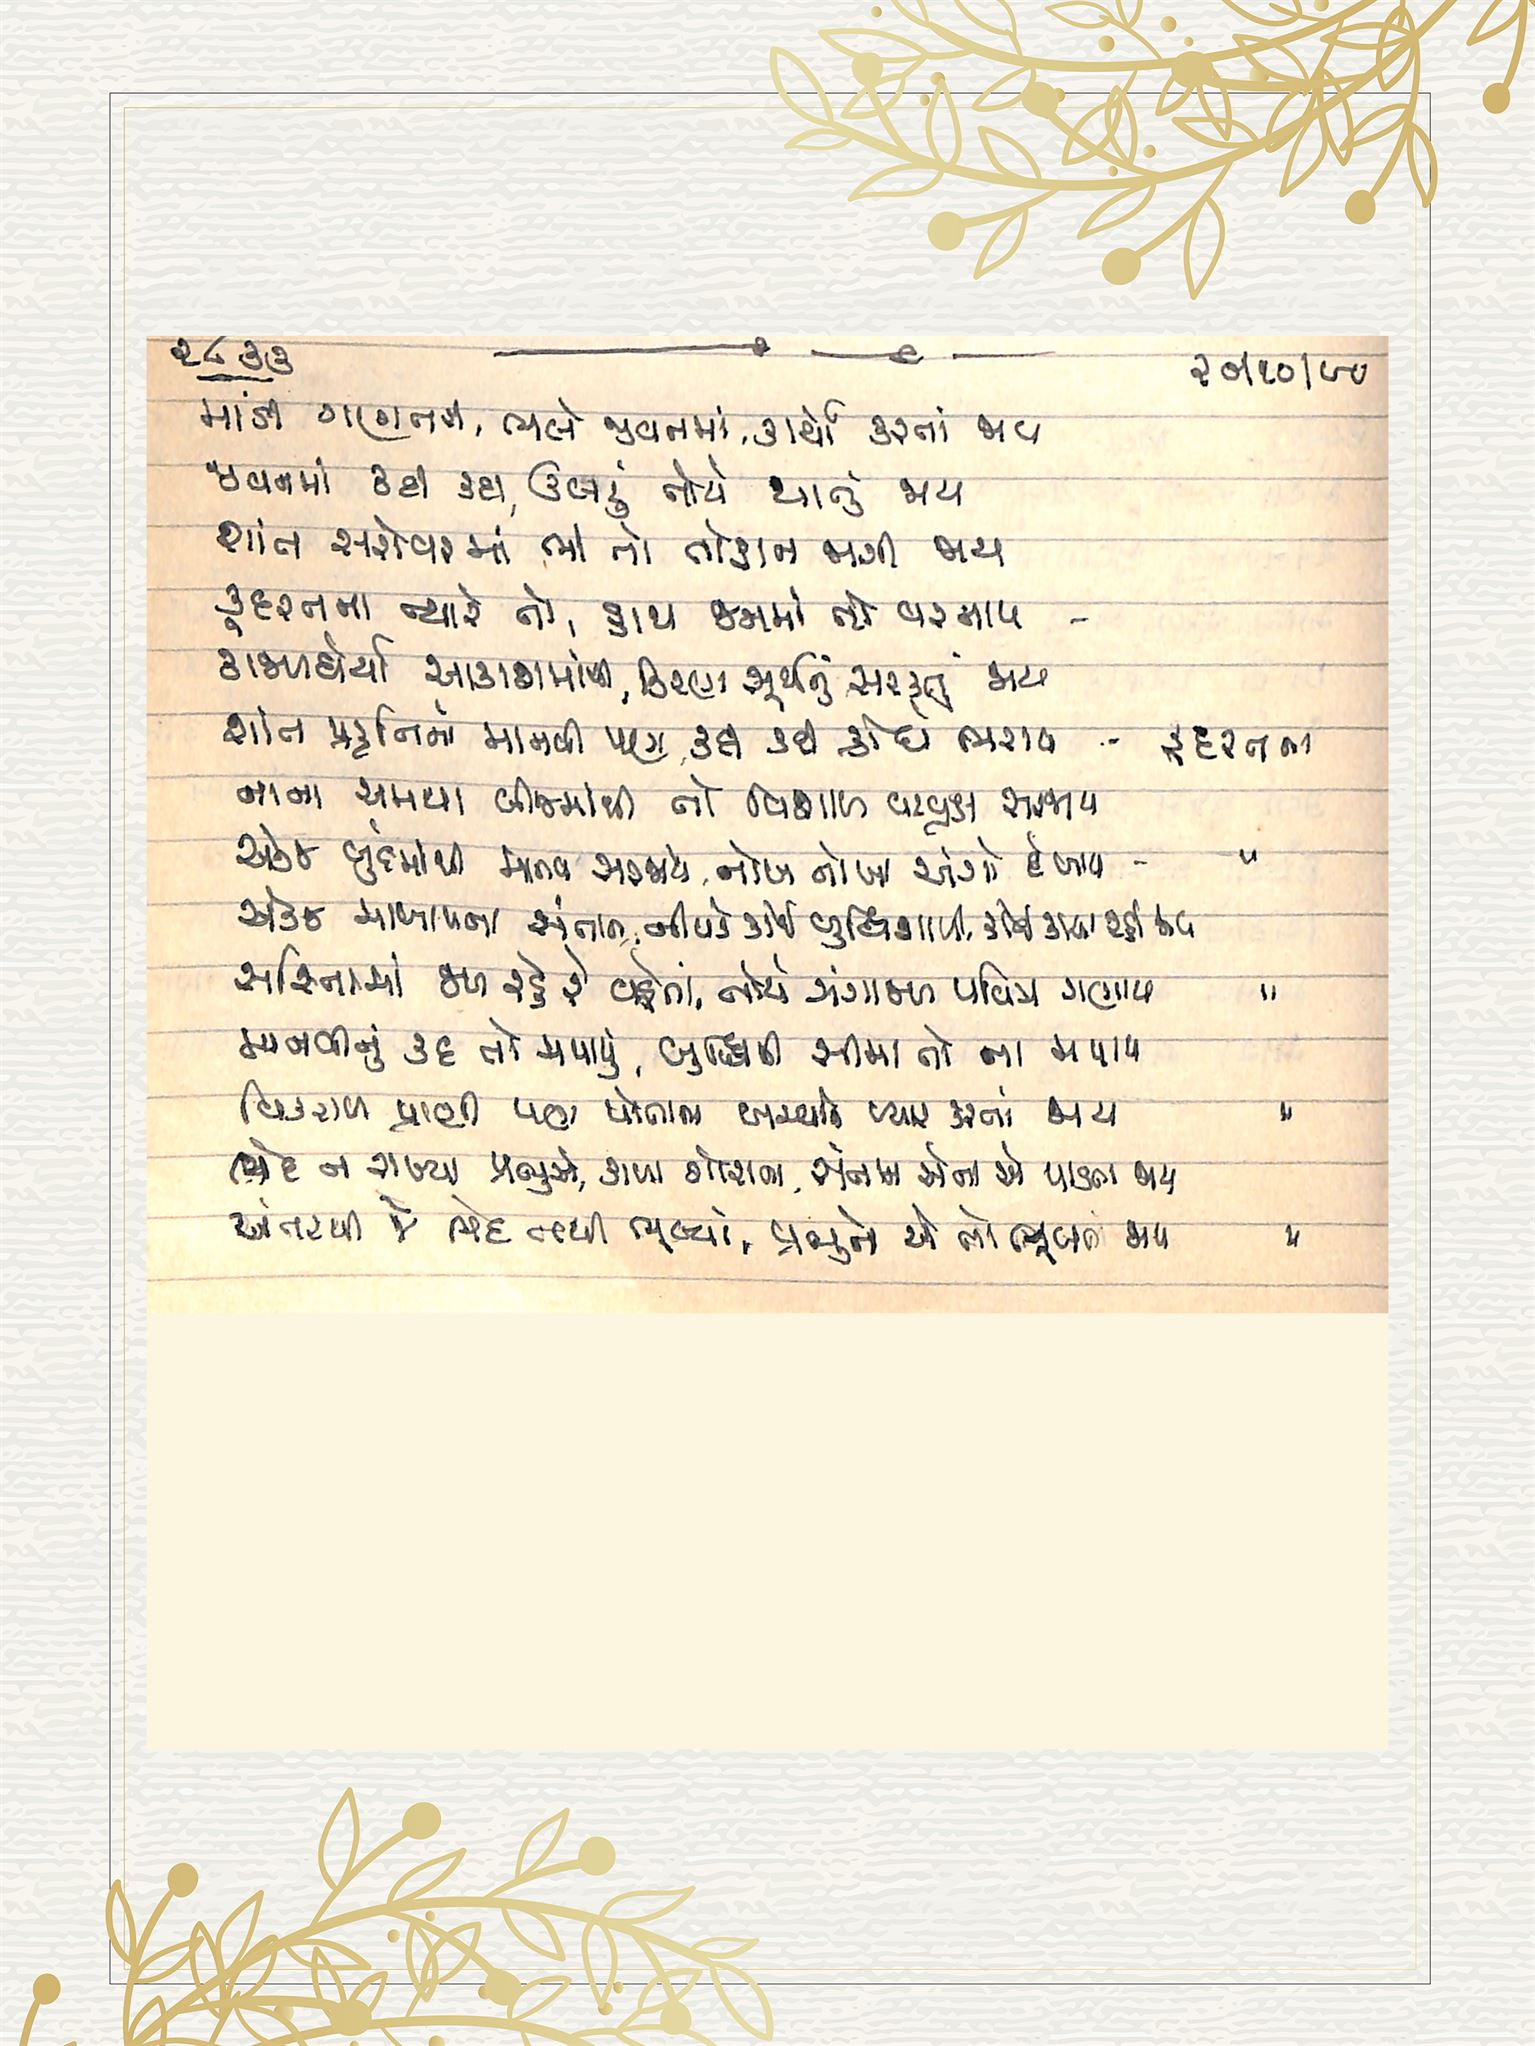 ૨૮૩૩
૨૭/૧૦/૯૦
માંડી ગણતરી, ભલે જીવનમાં, કાર્યો કરતાં જાવ
જીવનમાં કદી કદી, ઉલટું તોયે થાતું જાય
શાંત સરોવરમાં ભી તો તોફાન જાગી જાય
કુદરતના ન્યારે તો, હાથ જગમાં તો વરતાય -
કાજળઘેર્યા આકાશમાંથી, કિરણ સૂર્યનું સરકતું જાય
શાંત પ્રકૃતિનો માનવી પણ, કદી કદી ક્રોધે ભરાય - કુદરતના
નાના અમથા બીજમાંથી તો વિશાળ વટવૃક્ષ સરજાય
એકજ બુંદમાંથી માનવ સરજાયે, નોખ નોખા અંગો દેખાય - "
એકજ માબાપના સંતાન, નીપજે કોઈ બુદ્ધિશાળી, કોઈ કાચા રહી જાય
સરિતામાં જળ રહે રે વહેતાં, તોયે ગંગાજળ પવિત્ર ગણાય "
માનવીનું કદ તો મપાયું, બુદ્ધિની સીમા તો ના મપાય
વિકરાળ પ્રાણી પણ પોતાના બચ્ચાંને પ્યાર કરતાં જાય "
ભેદ ન રાખ્યા પ્રભુએ, કાળા ગોરાના, સંતાન એના એ પાકતા જાય
અંતરથી જે ભેદ નથી ભૂલ્યો, પ્રભુને એ તો ભૂલતો જાય "